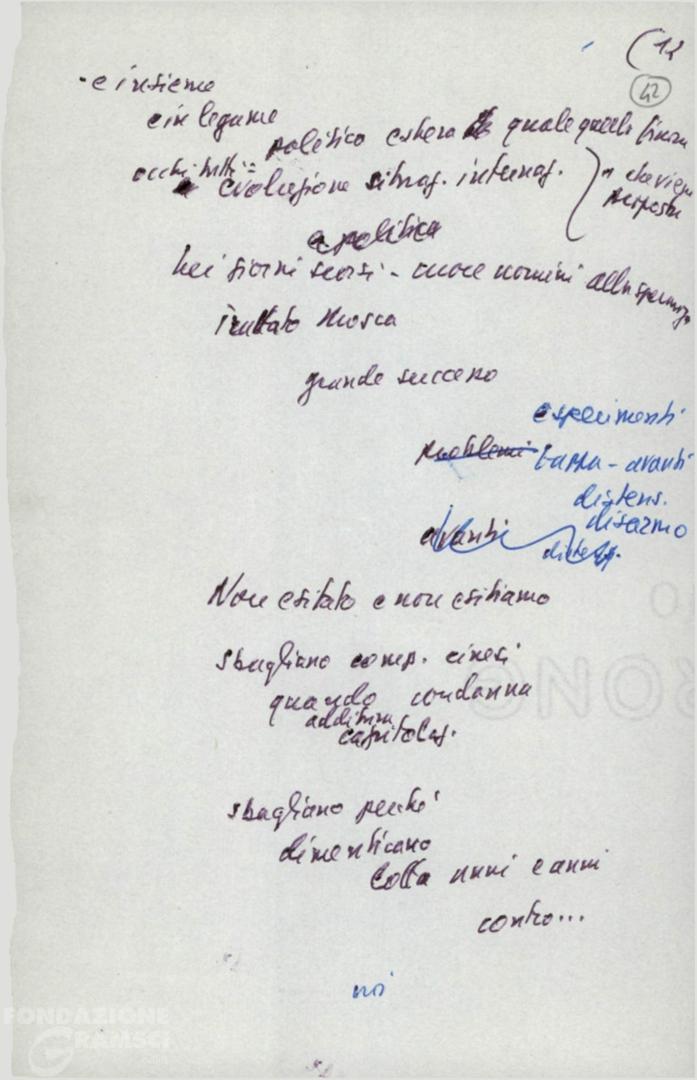 (12
42
- e insieme
e in legame
politica estera quale quella
occhi tutti :: evoluzione situaz. internaz.
e politica
Nei giorni scorsi - cuore uomini alla speranza
Trattato Mosca
grande successo
esperimenti
problemi tappa - avanti
distens.
disarmo
avanti
Non esitato e non esitiamo
sbagliano comp. cinesi
quando condanna
addirittura
capitolaz.
sbagliano perché
dimenticano
lotta anni e anni
contro...
noi
FONDAZIONE
GRAMSCI